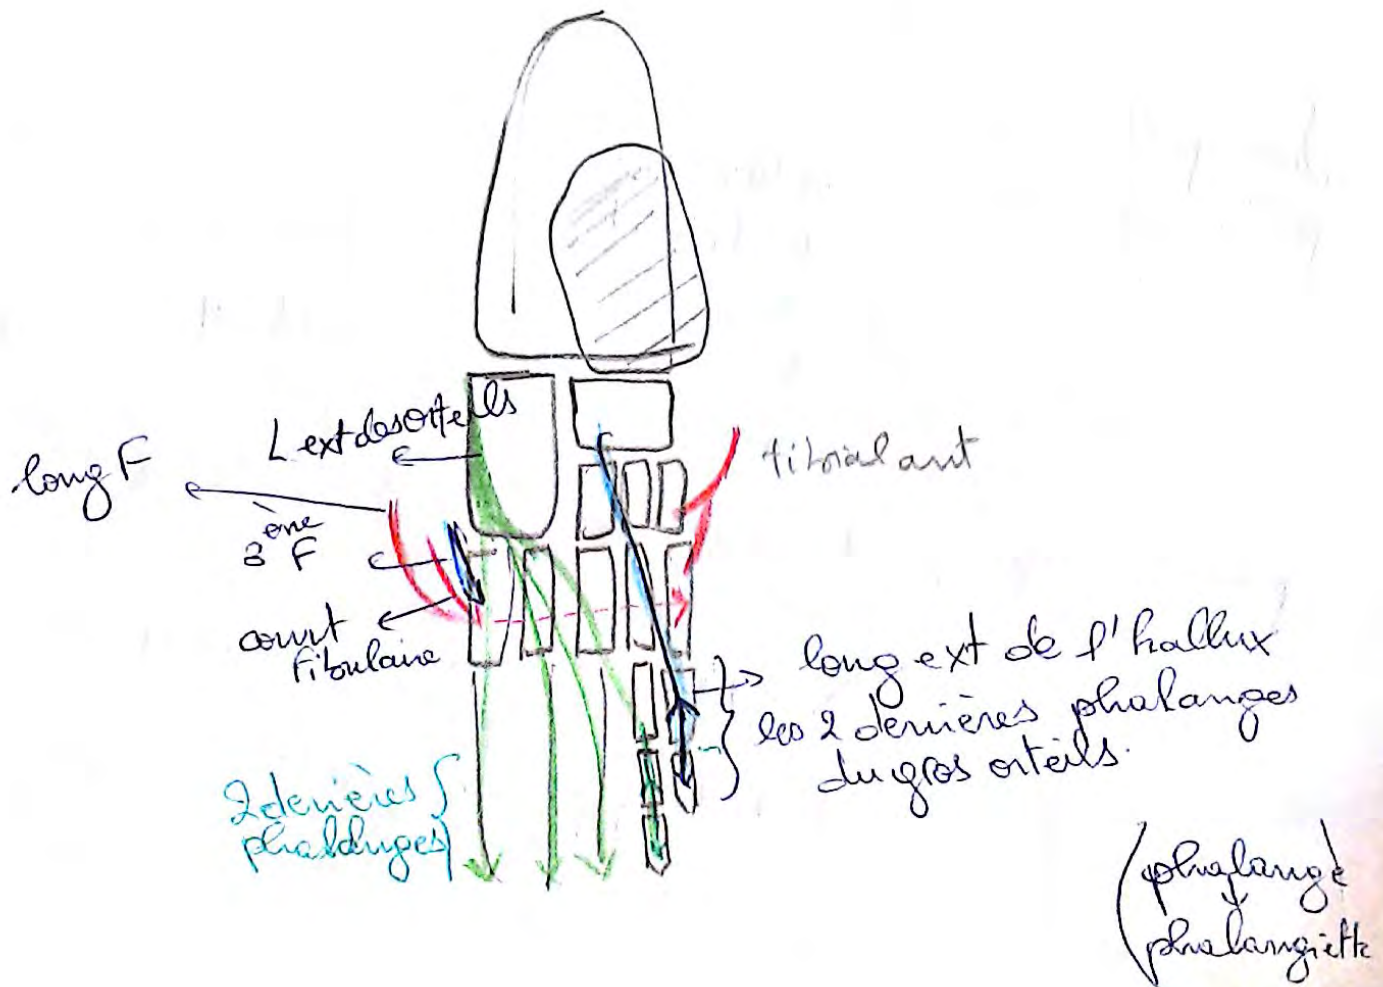 L ext des orteils
long F
tibial ant
3ème F
court
fibulaire
long ext de l'hallux
les 2 dernières phalanges
du gros orteils.
2 dernières
phalanges
(phalange
phalangiette